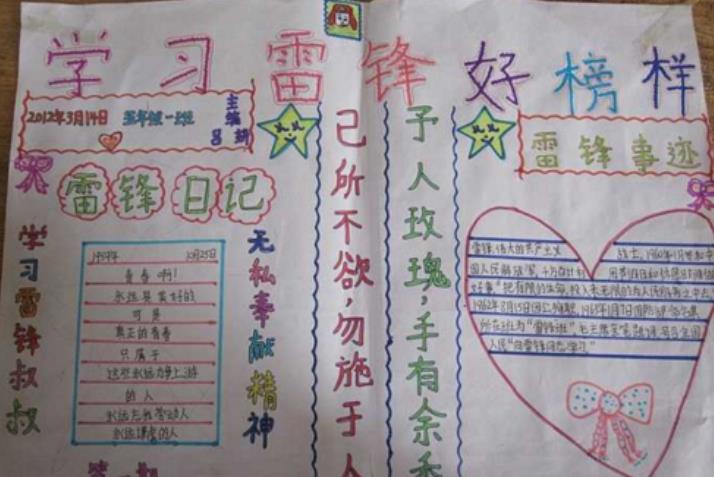 学习雷锋好榜样
2012年3月14日 五年级一班
主编
吕
雷锋日记
学习雷锋叔叔
1959年 10月25日
青春啊!
永远是美好的
可是
真正的青春
只属于
这些永远力争上游
的人
永远忘我劳动的人
永远谦虚的人
无私奉献精神
己所不欲,勿施于人
予人玫瑰,手有余香
雷锋事迹
雷锋 伟大的共产主义
战士,1960年1月参加中
国人民解放军,
好事"把有限的生命,投入到无限的为人民服务之中去"
1962年8月15日因公殉职,1963年1月7日国防部
所在班为"雷锋班",毛主席
人民"向雷锋同志学习"